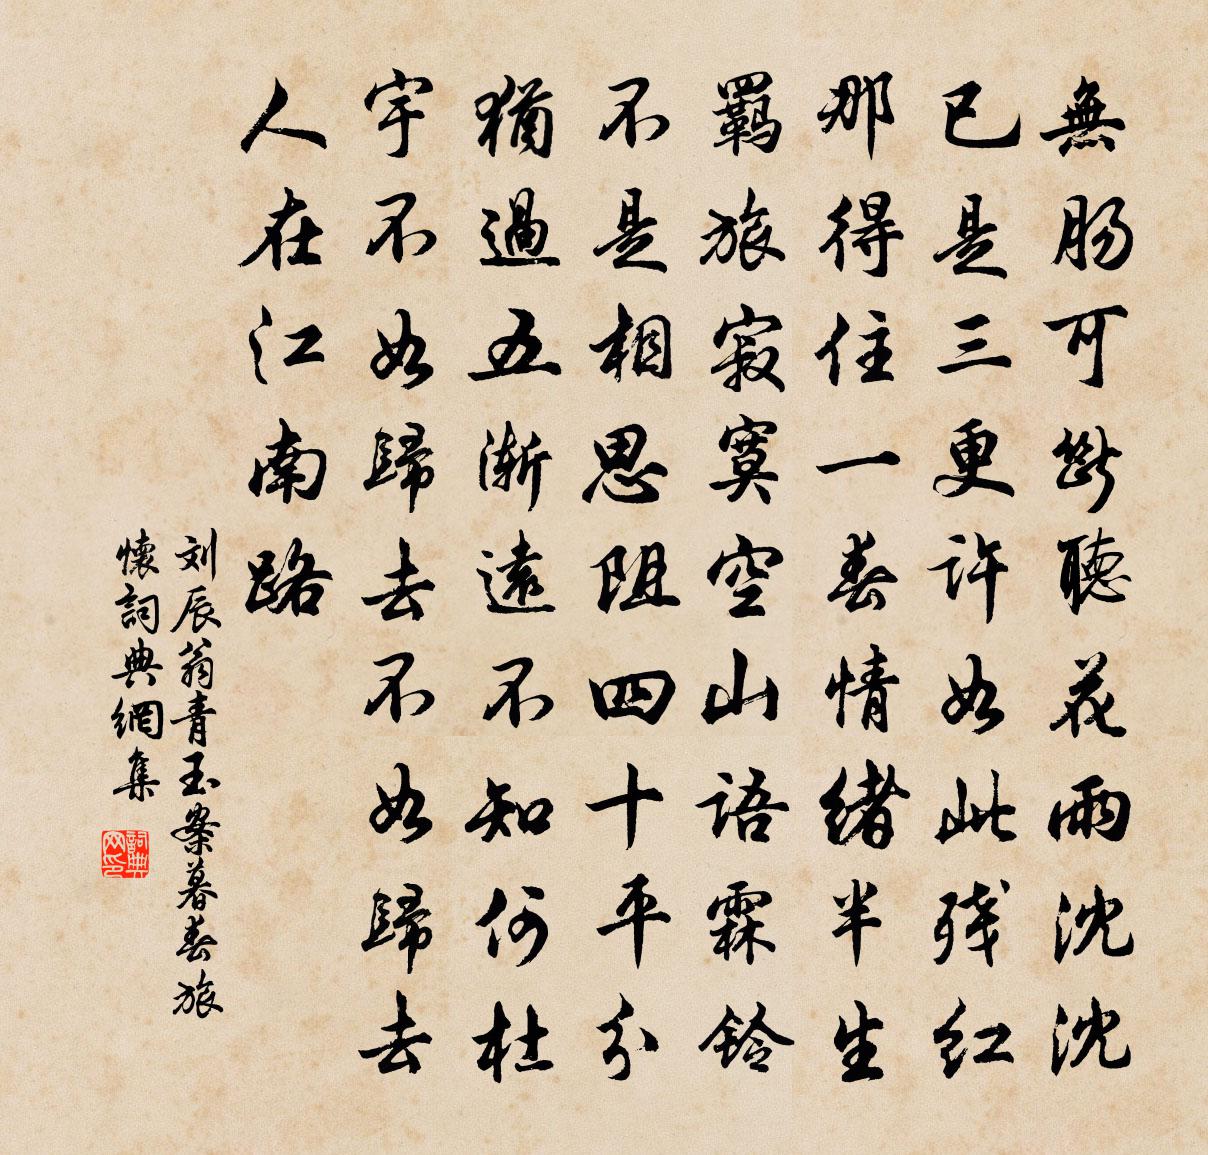 無腸可斷聽花雨沈沈
已是三更許如此残紅
那得住一春情緒半生
羈旅寂寞空山語霖鈴
不是相思阻四十平分
猶過五漸遠不知何杜
宇不如歸去不如歸去
人在江南路
刘辰翁青玉案暮春旅
懷詞典網集
詞典网印